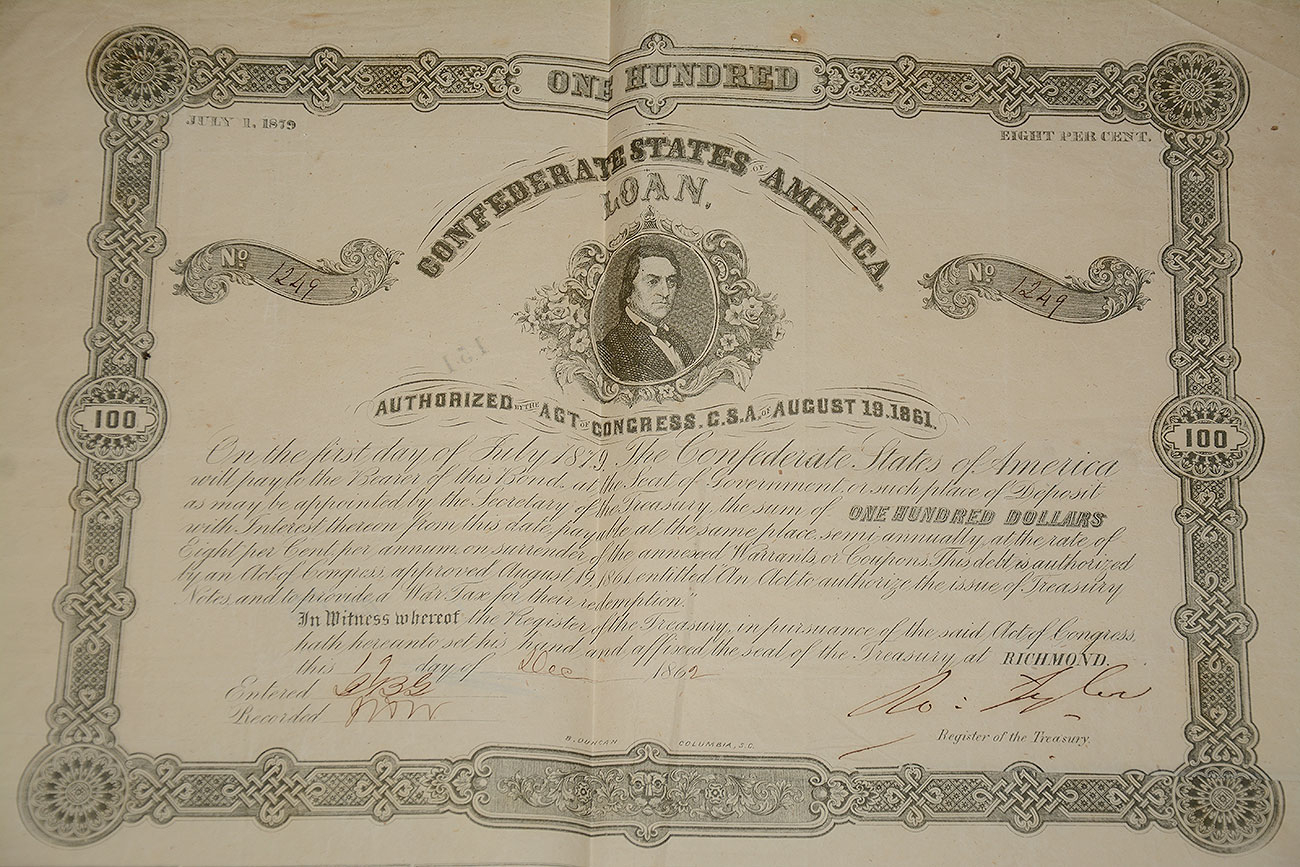 ONE HUNDRED
JULY 1, 1879
EIGHT PER CENT.
CONFEDERATE STATES OF AMERICA
LOAN.
No 1249
No 1249
151
AUTHORIZED BY THE ACT OF CONGRESS, C.S.A. OF AUGUST 19.1861.
100
100
On the first day of July 1879, The Confederate States of America
will pay to the Bearer of this Bond, at the Seat of Government, or such place of Deposit
as may be appointed by the Secretary of the Treasury, the sum of ONE HUNDRED DOLLARS
with Interest thereon from this date, payable at the same place, semi-annually, at the rate of
Eight per Cent, per annum, on surrender of the annexed Warrants, or Coupons. This debt is authorized
by an Act of Congress, approved August 19 1861, entitled "An Act to authorize the issue of Treasury
Notes, and to provide a War Tax for their redemption."
In Witness whereof the Register of the Treasury, in pursuance of the said Act of Congress,
hath hereunto set his hand and affixed the seal of the Treasury, at RICHMOND,
this 12 day of Dec 1862
Entered
Recorded
Ro: Tyler
Register of the Treasury.
B. DUNCAN COLUMBIA, S.C.